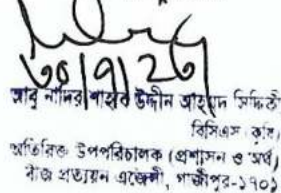 ৩০/৭/২৩
আবু নাদির
উদ্দীন আহমদ সিদ্দিকী
বিসিএস (কৃষি)
অতিরিক্ত উপপরিচালক (প্রশাসন ও অর্থ)
বীজ প্রত্যয়ন এজেন্সী, গাজীপুর-১৭০১